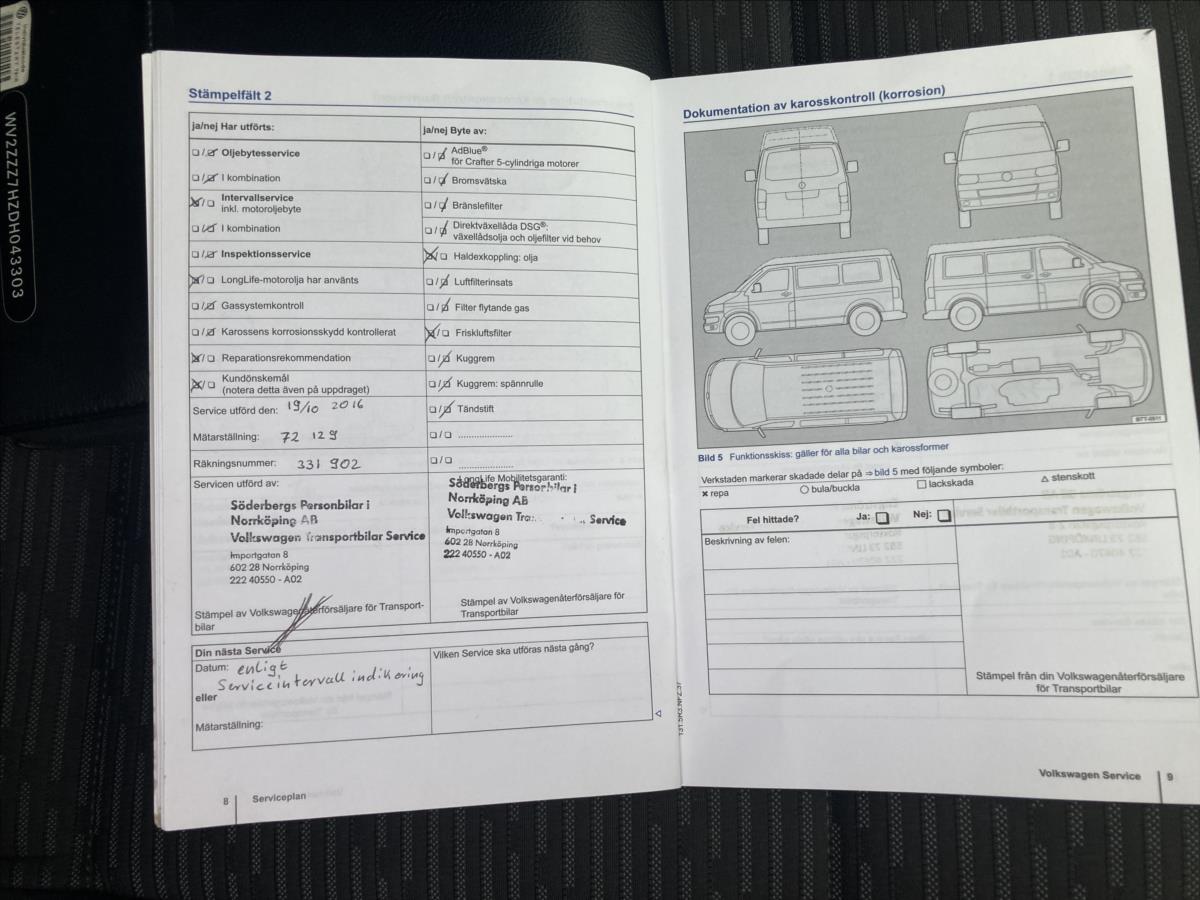 WV2ZZZ7HZDH043303
Stämpelfält 2
ja/nej Har utförts:
Oljebytesservice
I kombination
Intervallservice
inkl. motoroljebyte
I kombination
Inspektionsservice
LongLife-motorolja har använts
Gassystemkontroll
Karossens korrosionsskydd kontrollerat
Reparationsrekommendation
Kundönskemål
(notera detta även på uppdraget)
Service utförd den: 19/10 2016
Mätarställning: 72 129
Räkningsnummer: 331 902
ja/nej Byte av:
AdBlue®
för Crafter 5-cylindriga motorer
Bromsvätska
Bränslefilter
Direktväxellåda DSG®:
växellådsolja och oljefilter vid behov
Haldexkoppling: olja
Luftfilterinsats
Filter flytande gas
Friskluftsfilter
Kuggrem
Kuggrem: spännrulle
Tändstift
Servicen utförd av:
Söderbergs Personbilar i
Norrköping AB
Volkswagen Transportbilar Service
Importgatan 8
602 28 Norrköping
222 40550 - A02
Stämpel av Volkswagenåterförsäljare för Transport-
bilar
LongLife Mobilitetsgaranti:
Söderbergs Personbilar i
Norrköping AB
Volkswagen Tra Service
Importgatan 8
602 28 Norrköping
222 40550 - A02
Stämpel av Volkswagenåterförsäljare för
Transportbilar
Din nästa Service
Datum: enligt
Serviceintervall indikering
eller
Mätarställning:
Vilken Service ska utföras nästa gång?
8 Serviceplan
Dokumentation av karosskontroll (korrosion)
Bild 5 Funktionsskiss: gäller för alla bilar och karossformer
Verkstaden markerar skadade delar på ⇒ bild 5 med följande symboler:
× repa ○ bula/buckla □ lackskada △ stenskott
Fel hittade? Ja: Nej:
Beskrivning av felen:
Stämpel från din Volkswagenåterförsäljare
för Transportbilar
131.5R3.NFZ.37
Volkswagen Service 9